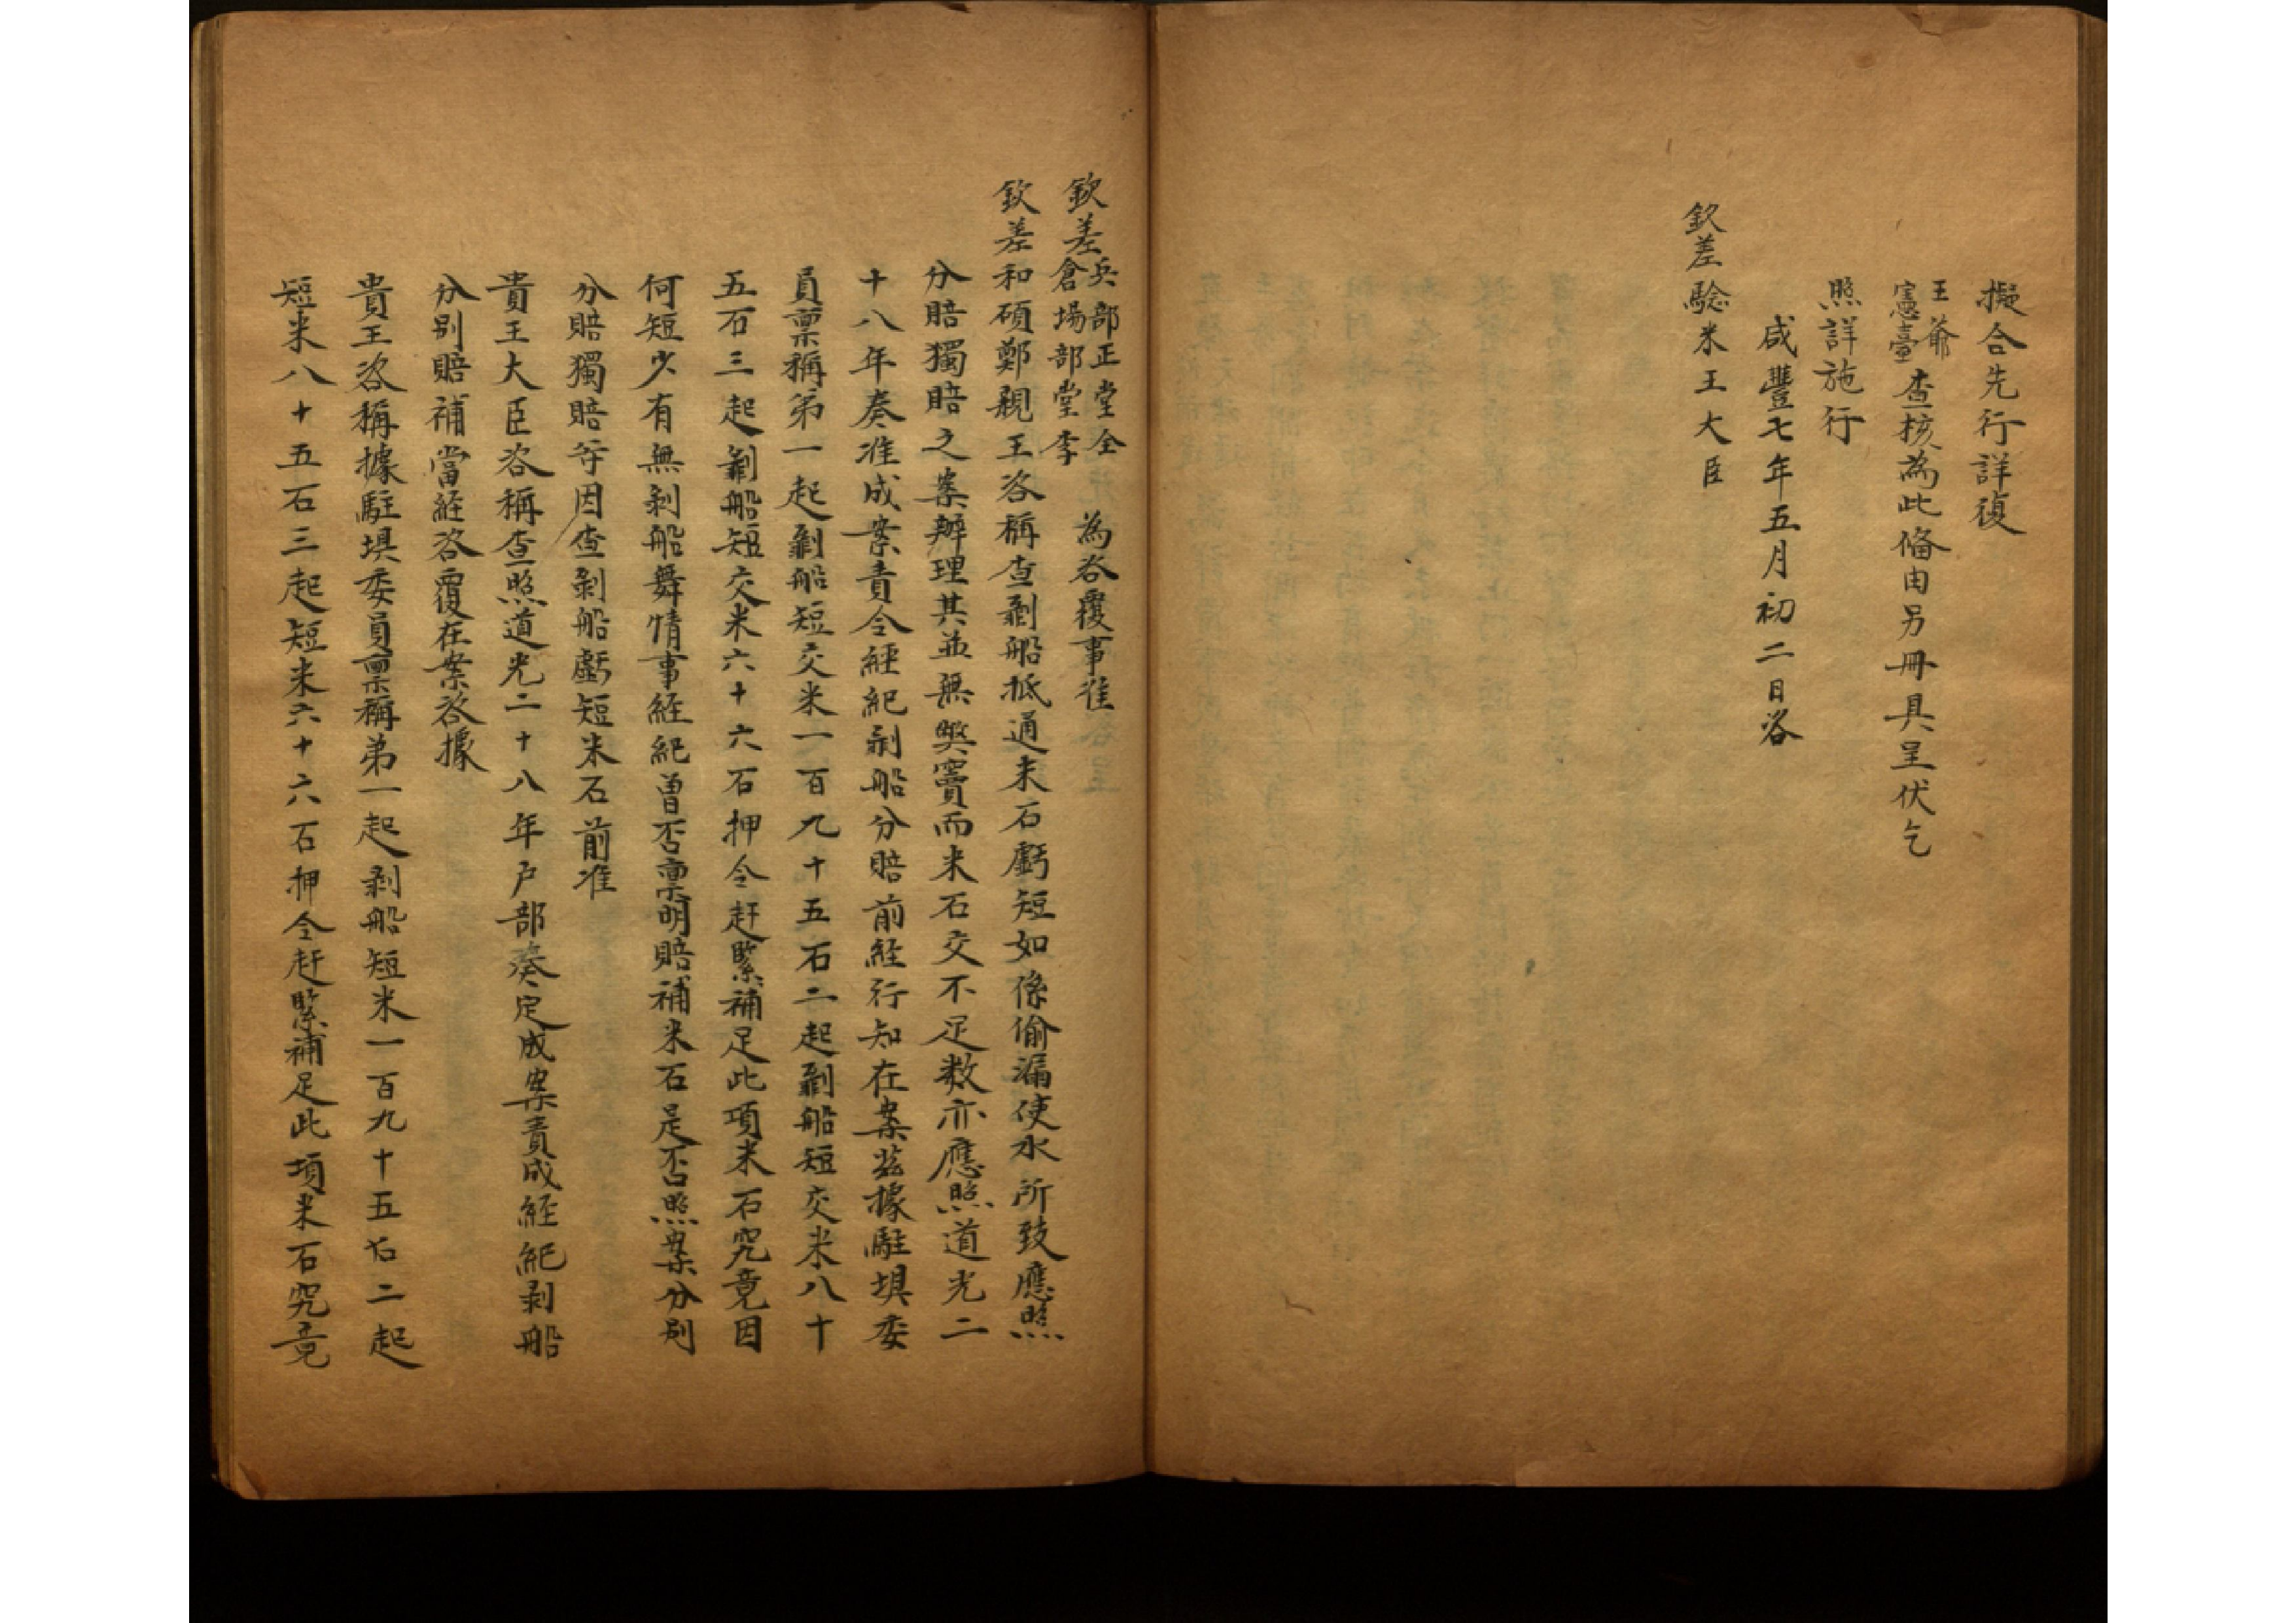 擬合先行詳復
王爺
憲臺查核為此偹由另冊具呈伏乞
照詳施行
咸豐七年五月初二日咨
欽差驗米王大臣
欽差兵部正堂全
倉場部堂李
為咨覆事准
欽差和碩鄭親王咨稱查剝船抵通米石虧短如係偷漏使水所致應照
分賠獨賠之案辦理其並無獘竇而米石交不足數亦應照道光二
十八年奏准成案責令經紀剝船分賠前經行知在案茲據駐垻委
員稟稱第一起剝船短交米一百九十五石二起剝船短交米八十
五石三起剝船短交米六十六石押令赶緊補足此項米石究竟因
何短少有無剝船舞情事經紀曽否稟明賠補米石是否照案分别
分賠獨賠等因查剝船虧短米石前准
貴王大臣咨稱查照道光二十八年户部奏定成案責成經紀剝船
分别賠補當經咨覆在案咨據
貴王咨稱據駐垻委員稟稱第一起剝船短米一百九十五石二起
短米八十五石三起短米六十六石押令赶緊補足此項米石究竟